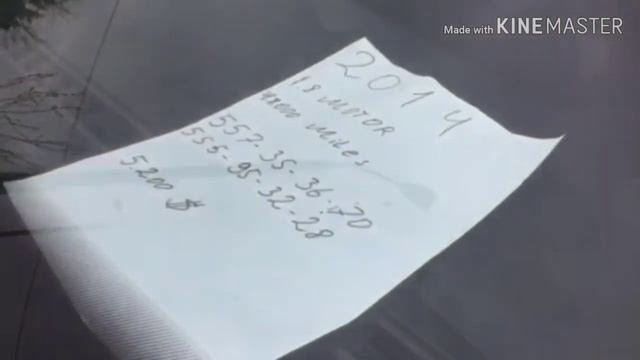 Made with KINEMASTER
2014
1.8 MOTOR
48000 miles
557-35-36-70
555-95-32-28
5.200 $